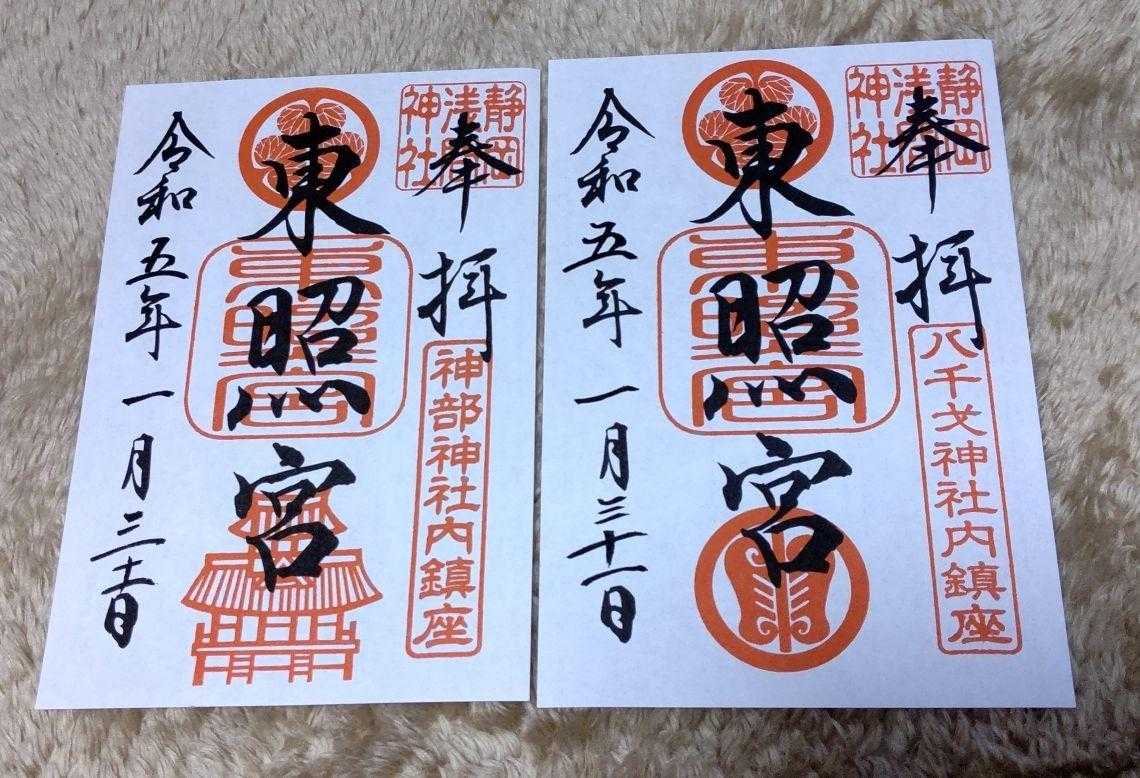 静岡
浅間
神社
奉拝
神部神社内鎮座
東照宮
東照宮
令和五年一月三十一日
静岡
浅間
神社
奉拝
八千戈神社内鎮座
東照宮
東照宮
令和五年一月三十一日